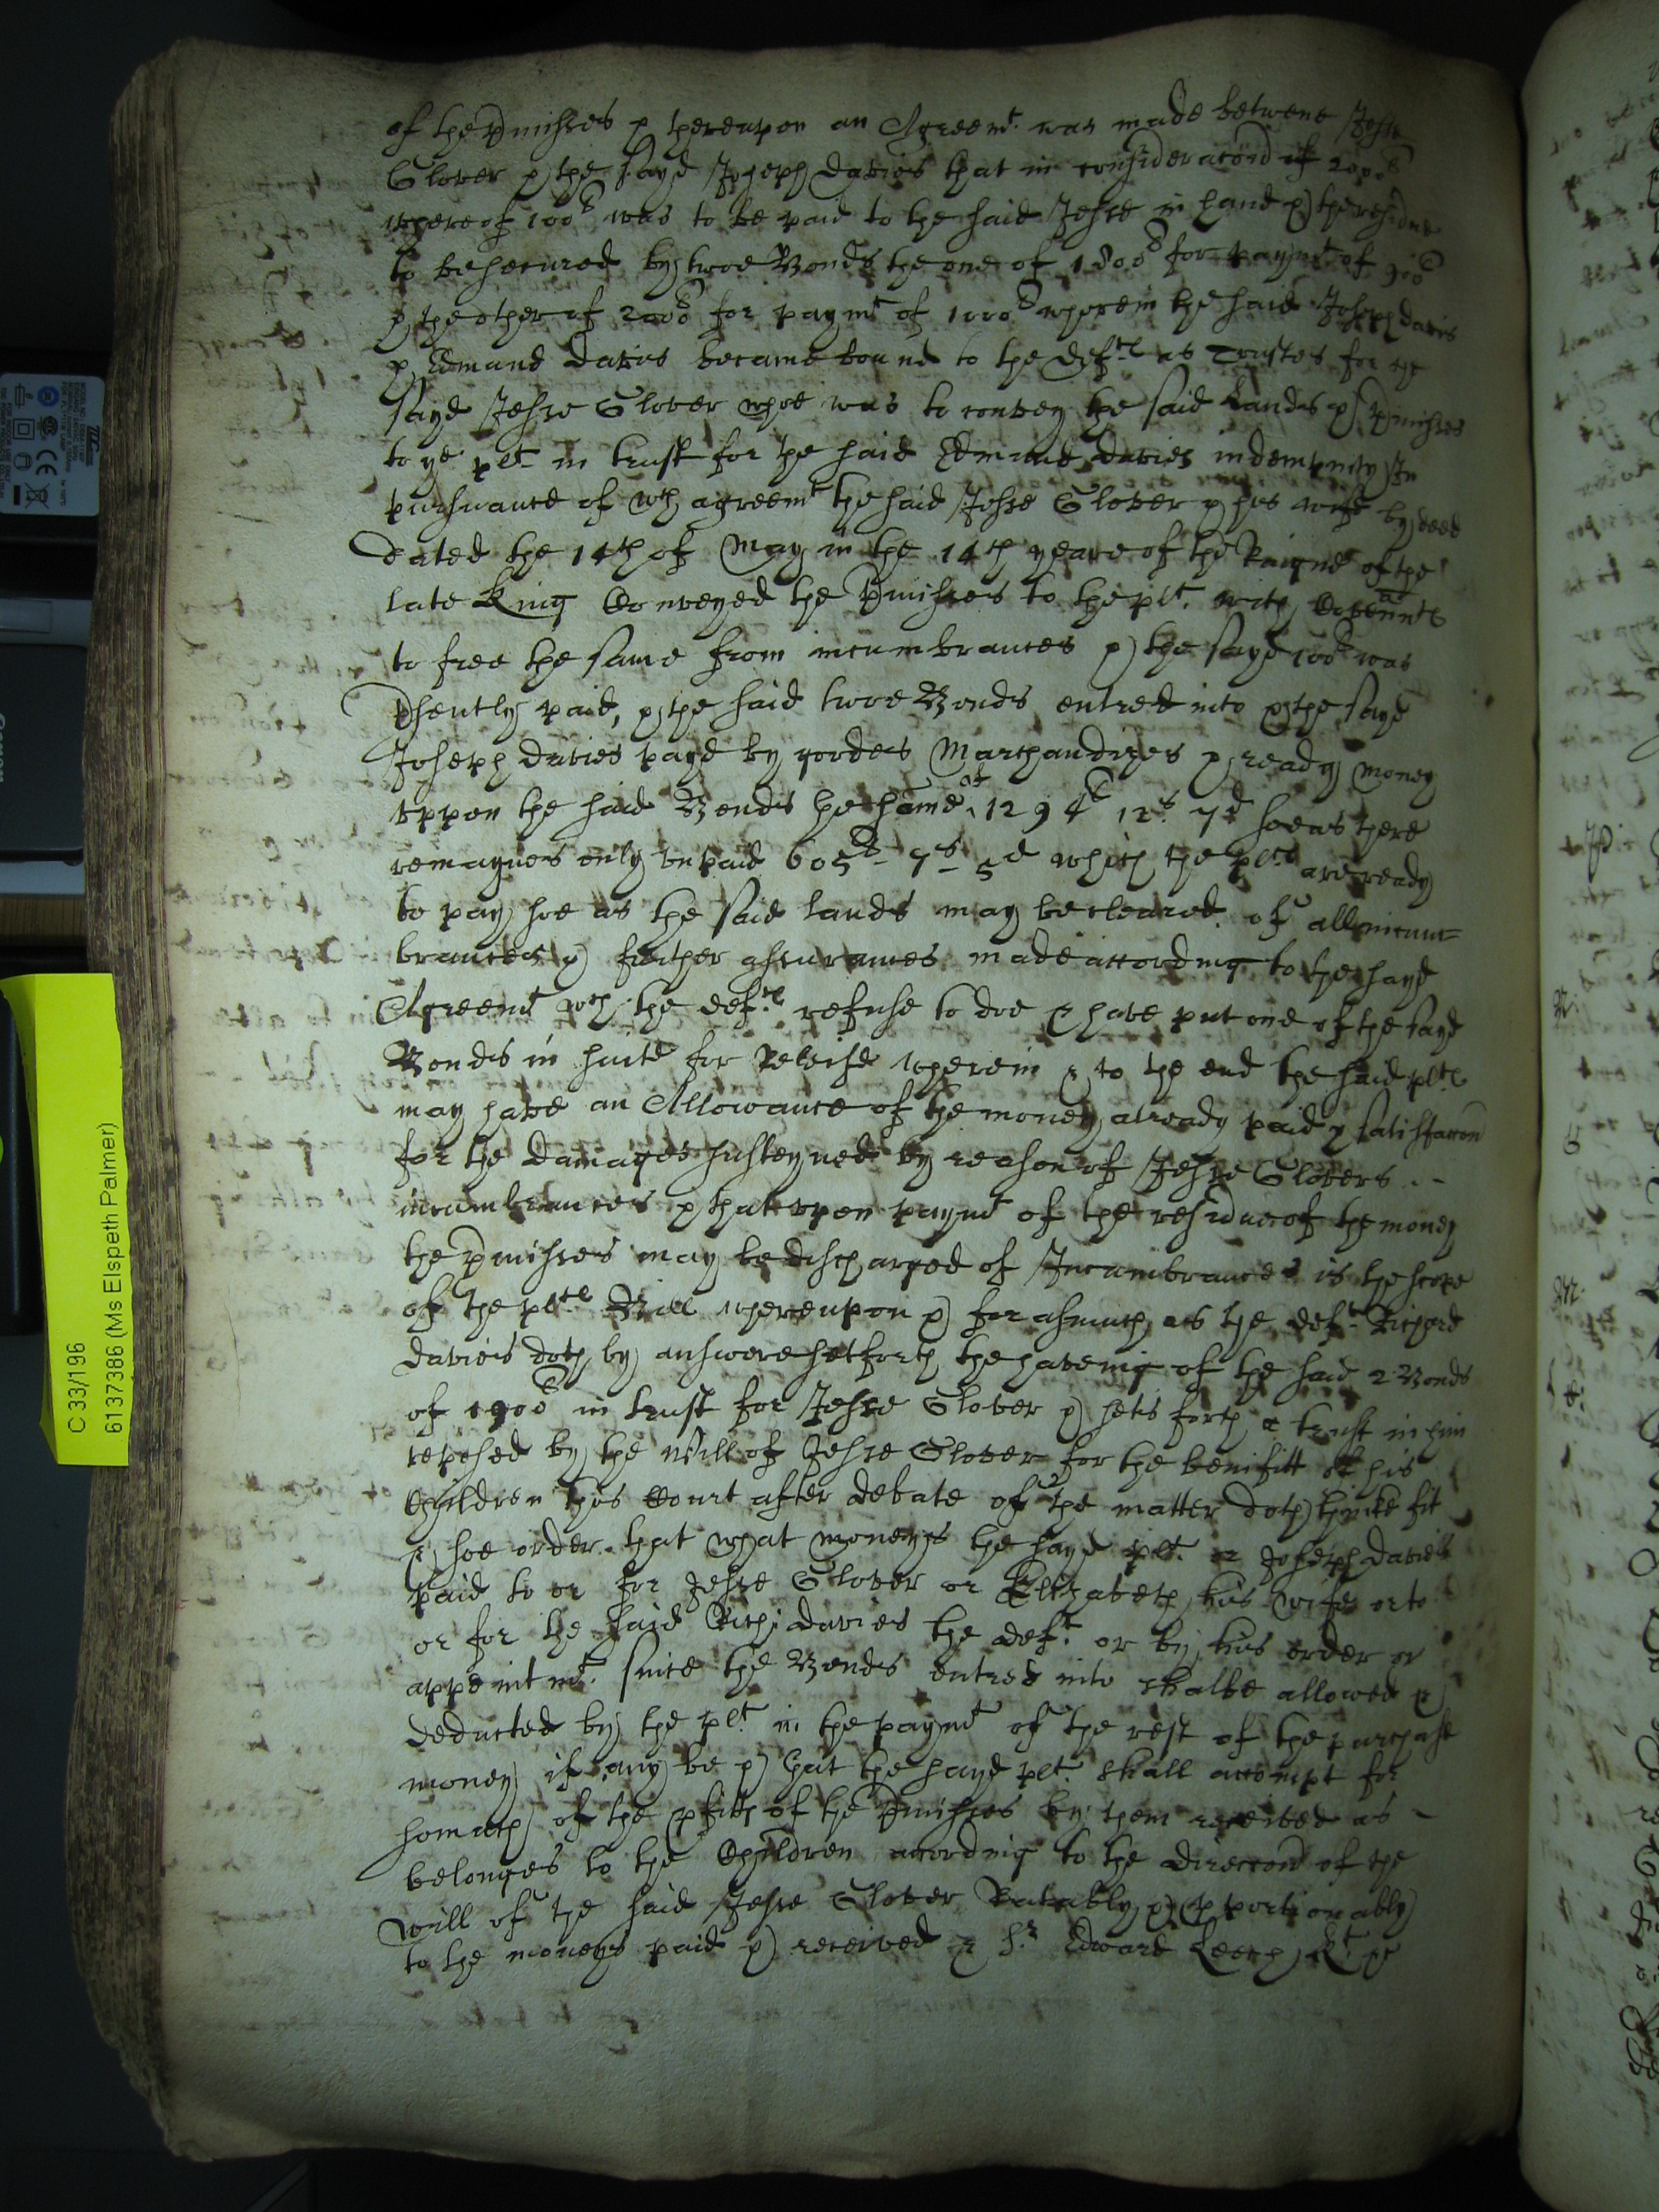 of the p̱misses & thereupon an Agreemt. was made betwene Jesse
Glover & the sayd Joseph Davies that in consideracōn of 2000l
whereof 100l was to be paid to the said Jesse in hand & the residue
to be secured by twoe Bonds the one of 1800l for paymt of 900l
& the other of 2000l for paymt of 1000l wherein the said Joseph Davies
& Edmund Davies became bound to the Defts as Trustes for the
sayd Jesse Glover whoe was to convey the said Lands & p̱misses
to ye plt. in trust for the said Edmund Davies indempnity In
pursuance of wch agreemt the said Jesse Glover & his wife by deed
dated the 14th of May in the 14th yeare of the Raigne of the
late King Conveyed the p̱misses to the plt. with Covennts
to free the same from incumbrances & the sayd 100l was
p̱sently paid, & the said twoe Bonds entred into & the sayd
Joseph Davies payd by goodes Marchandizes & ready money
uppon the said Bonds the some of 1294l 12s. 7d soe as there
remaynes only unpaid 605l 7s 5d which the plts are ready
to pay soe as the said lands may be cleared of all incum=
brances & further assurances made according to the sayd
Agreemt wch the defts refuse to doe & have put one of the sayd
Bonds in suite for Releife wherein & to the end the said plts
may have an Allowance of the money already paid & satisfaccon
for the damages susteyned by reason of Jesse Glovers
incumbrances & that upon paymt of the residue of the money
the p̱misses may be discharged of Incumbrances is the scope
of the plts Bill whereupon & forasmuch as the deft. Richard
Davies doth by answere sett forth the haveing of the said 2 Bonds
of 1900l in trust for Jesse Glover & setts forth a trust in him
reposed by the Will of Jesse Glover for the benifitt of his
Children this Court after debate of the matter doth thinke fit
& soe order that what moneys the sayd plt. or Joseph Davies
paid to or for Jesse Glover or Elizabeth his wife or to
or for the said Rich: Davies the deft. or by his order or
appointmt. since the Bonds entred into shalbe allowed &
deducted by the plt. in the paymt of the rest of the purchase
money if any be & that the sayd plt. shall accompt for
somuch of the p̱fitts of the p̱misses by them received as
belonges to the Children according to the direccon of the
Will of the said Jesse Glover Ratably & p̱portionably
to the moneys paid & received & Sr. Edward Leech Kt.
C 33/196
6137386 (Ms Elspeth Palmer)